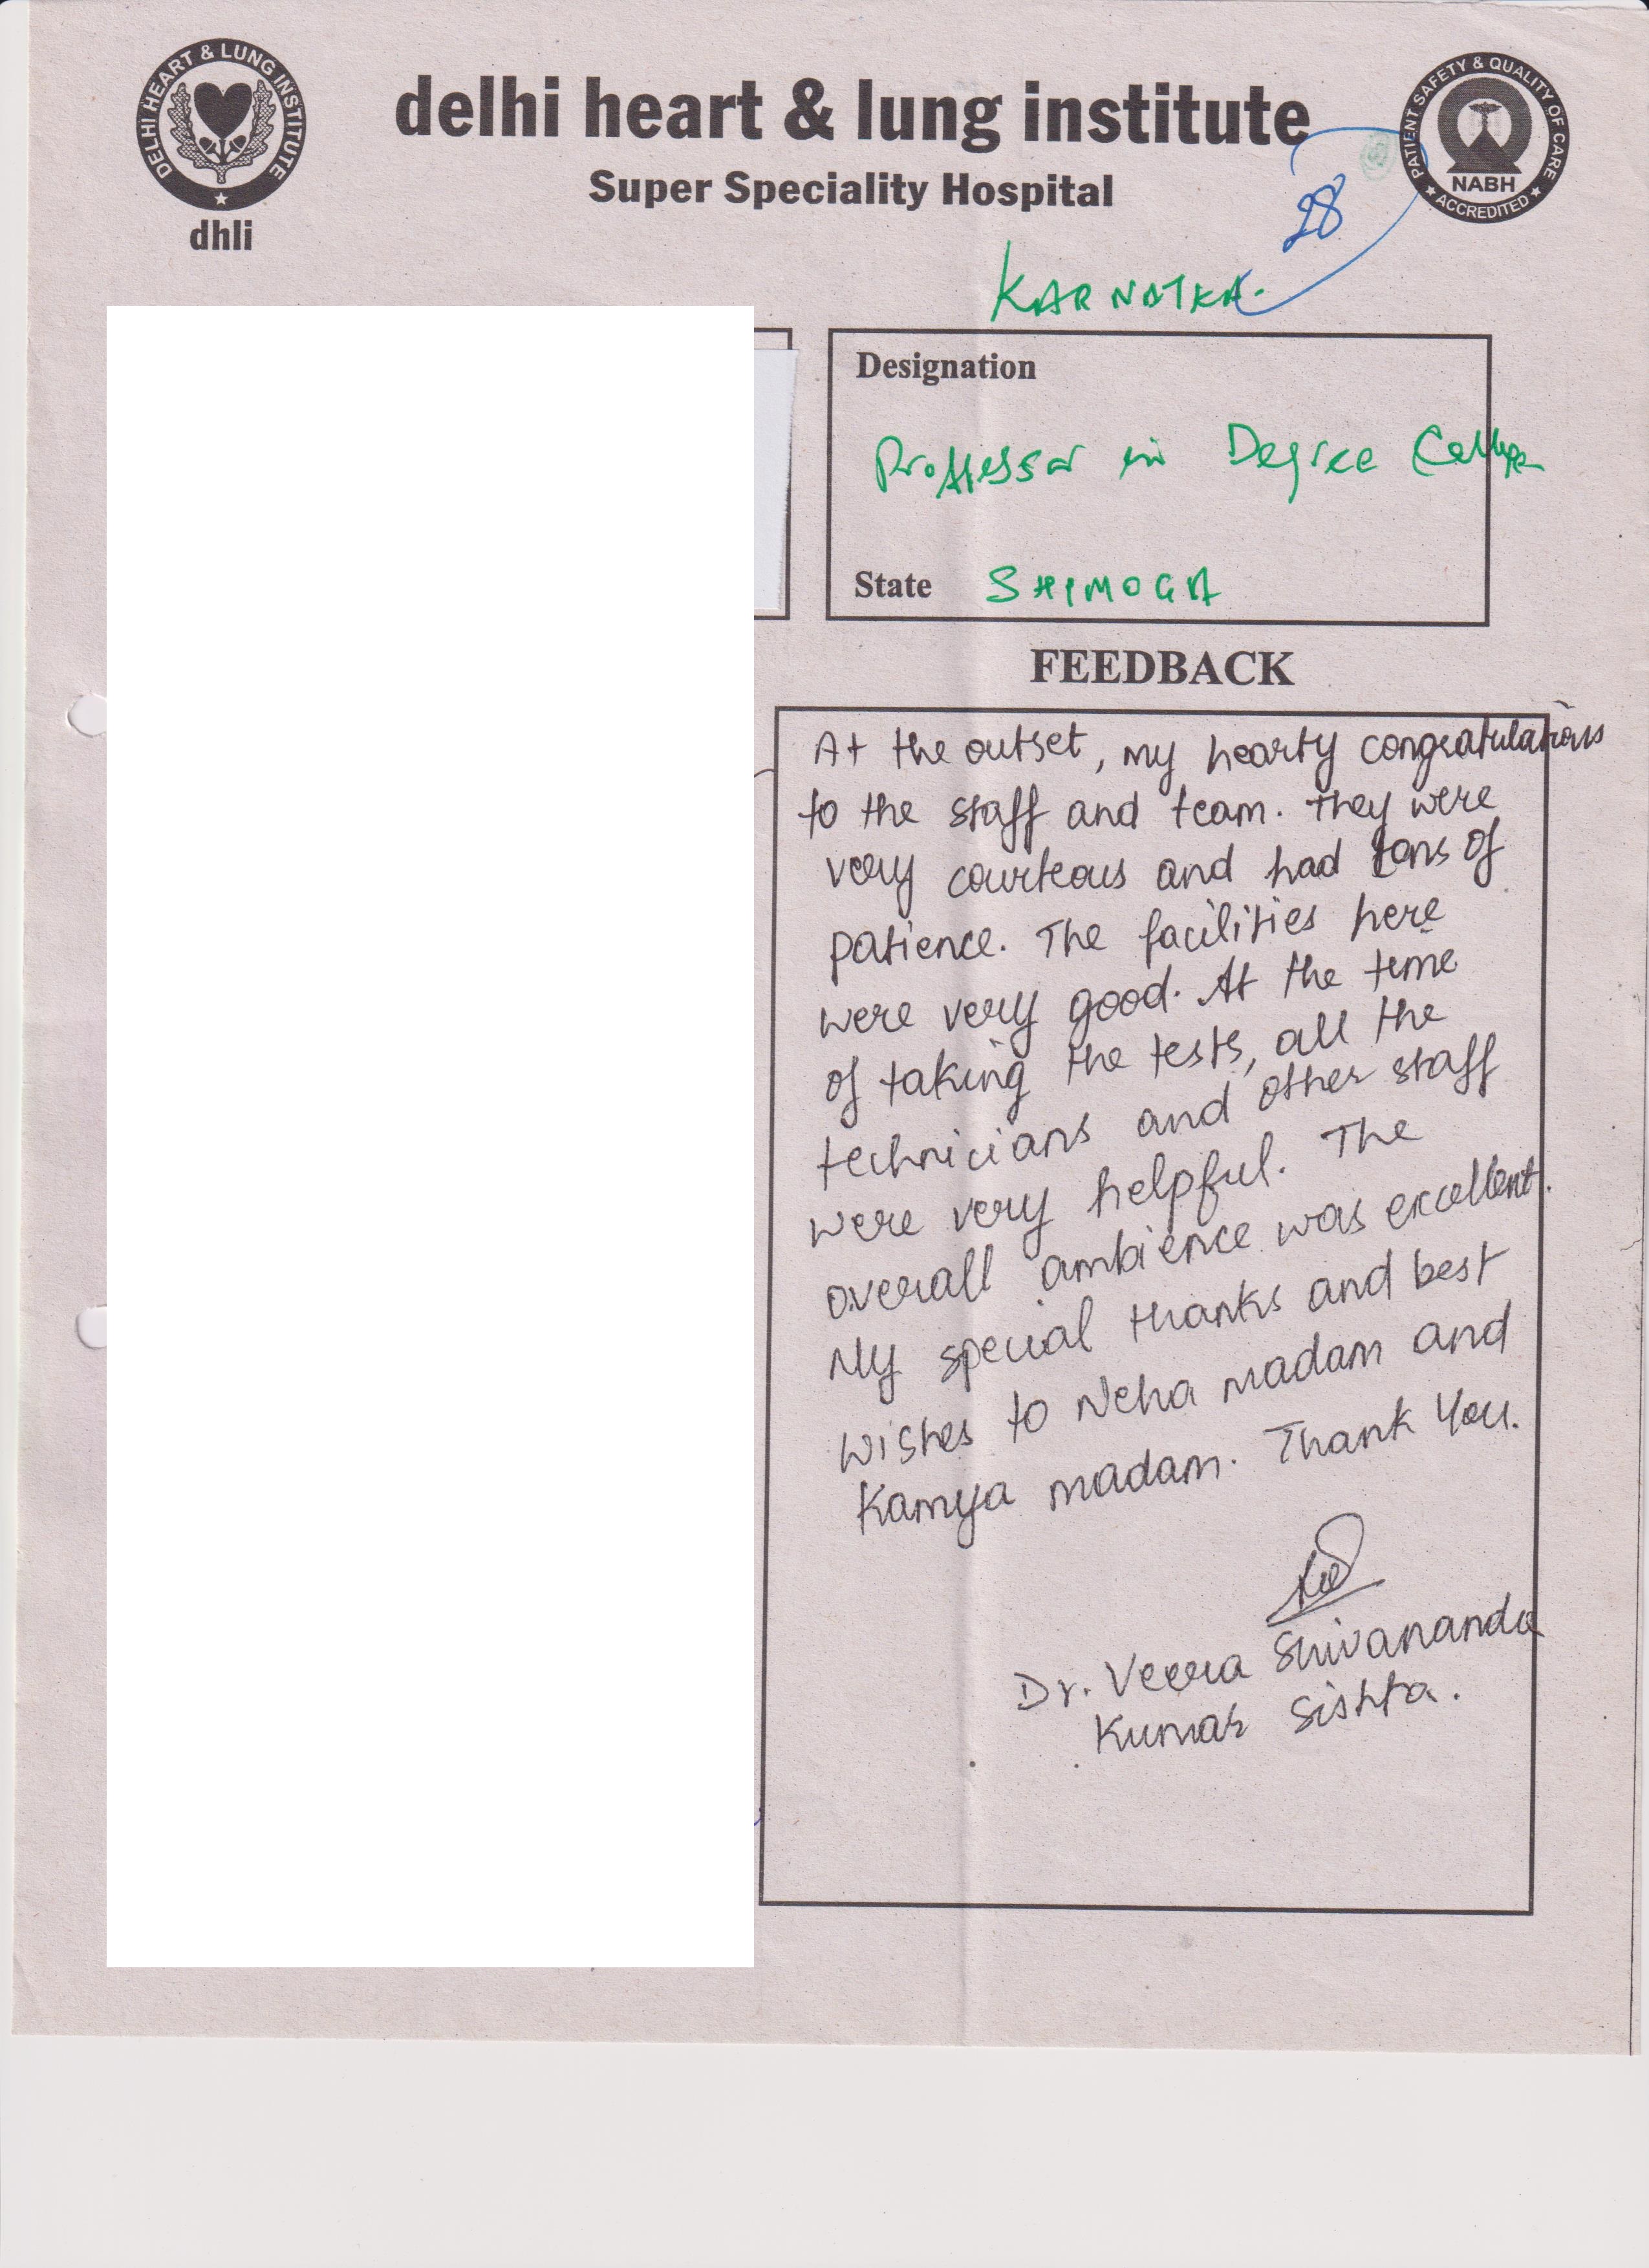 DELHI HEART & LUNG INSTITUTE
dhli
delhi heart & lung institute
Super Speciality Hospital
PATIENT SAFETY & QUALITY OF CARE
NABH
ACCREDITED
28
KARNATKA.
Designation
Proffessor in Degree College
State SHIMOGA
FEEDBACK
At the outset, my hearty congratulations
to the staff and team. They were
very courteous and had tons of
patience. The facilities here
were very good. At the time
of taking the tests, all the
technicians and other staff
were very helpful. The
overall ambience was excellent.
My special thanks and best
wishes to Neha madam and
Kamya madam. Thank You.
Dr. Veera Shivananda
Kumar Sishta.